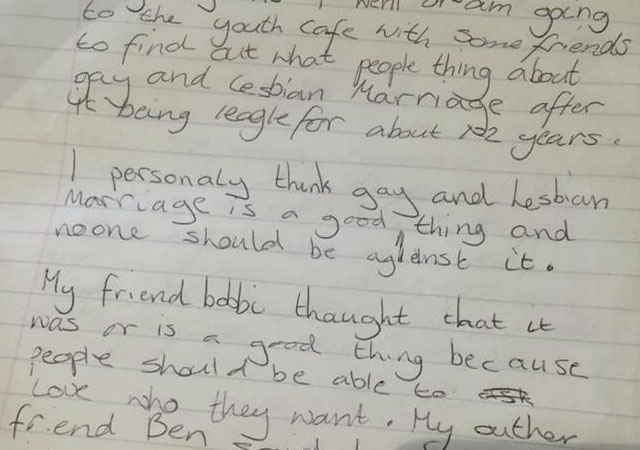 went or am going
to the youth cafe with some friends
to find out what people thing about
gay and Lesbian Marriage after
it being leagle for about 2 years.
I personaly think gay and Lesbian
Marriage is a good thing and
noone should be against it.
My friend bobbi thaught that it
was or is a good thing because
people should be able to
Love who they want. My outher
friend Ben said